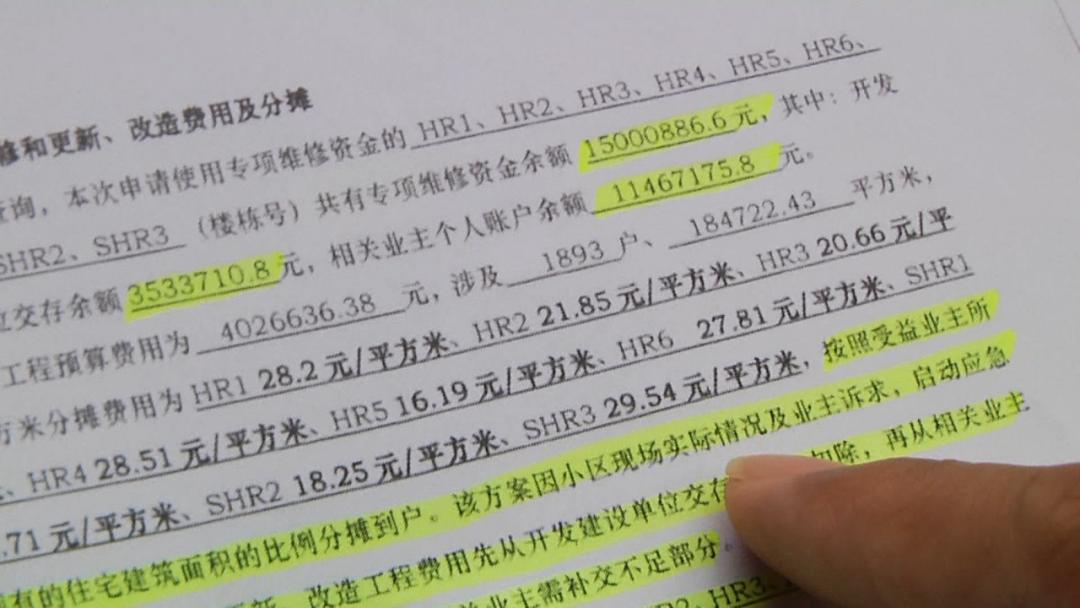 修和更新、改造费用及分摊
查询，本次申请使用专项维修资金的 HR1、HR2、HR3、HR4、HR5、HR6、
SHR2、SHR3 （楼栋号）共有专项维修资金余额 15000886.6 元，其中：开发
位交存余额 3533710.8 元，相关业主个人账户余额 11467175.8 元。
工程预算费用为 4026636.38 元，涉及 1893 户、 184722.43 平方米，
方米分摊费用为 HR1 28.2 元/平方米、HR2 21.85 元/平方米、HR3 20.66 元/平
、HR4 28.51 元/平方米、HR5 16.19 元/平方米、HR6 27.81 元/平方米、SHR1
.71 元/平方米、SHR2 18.25 元/平方米、SHR3 29.54 元/平方米，按照受益业主所
有的住宅建筑面积的比例分摊到户。该方案因小区现场实际情况及业主诉求，启动应急
更新、改造工程费用先从开发建设单位交存 扣除，再从相关业主
业主需补交不足部分。
HR3、